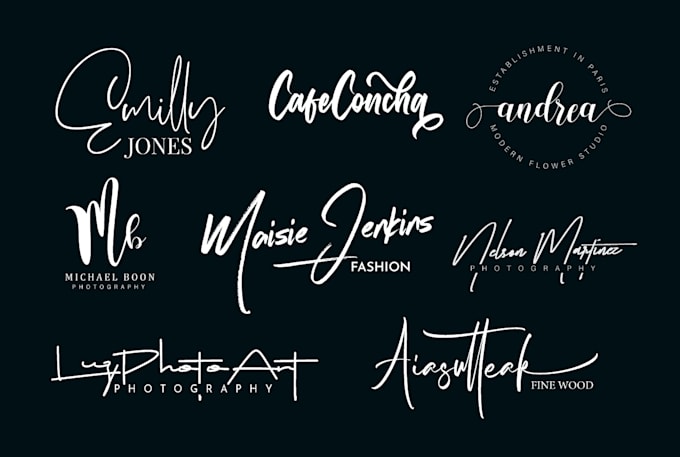 Emilly
JONES
CafeConcha
ESTABLISHMENT IN PARIS
andrea
MODERN FLOWER STUDIO
Mb
MICHAEL BOON
PHOTOGRAPHY
Maisie Jenkins
FASHION
Nelson Martinez
PHOTOGRAPHY
LuzPhotoArt
PHOTOGRAPHY
Aiasutteak
FINE WOOD